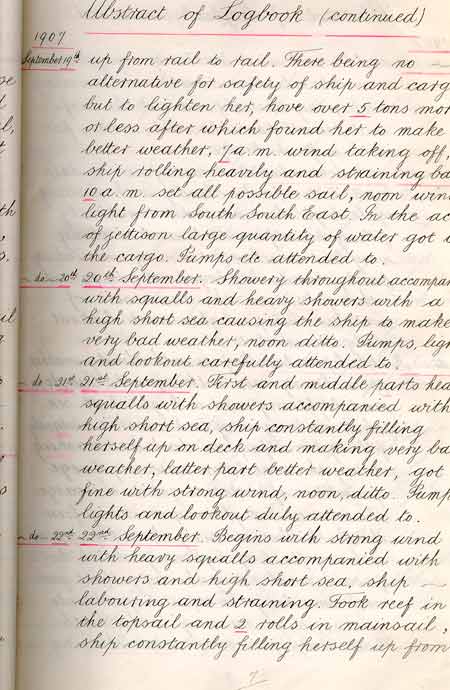 Abstract of Logbook (continued)
1907
September 19th up from rail to rail. There being no
alternative for safety of ship and carg
but to lighten her, hove over 5 tons mor
or less after which found her to make
better weather, 7 a.m. wind taking off,
ship rolling heavily and straining ba
10 a.m. set all possible sail, noon win
light from South South East. In the ac
of jettison large quantity of water got i
the cargo. Pumps etc. attended to.
- do - 20th 20th September. Showery throughout accompa
with squalls and heavy showers with a
high short sea causing the ship to make
very bad weather, noon ditto. Pumps, lig
and lookout carefully attended to.
- do - 21st 21st September. First and middle parts hea
squalls with showers accompanied with
high short sea, ship constantly filling
herself up on deck and making very ba
weather, latter part better weather, got
fine with strong wind, noon, ditto. Pump
lights and lookout duly attended to.
- do - 22nd 22nd September. Begins with strong wind
with heavy squalls accompanied with
showers and high short sea, ship
labouring and straining. Took reef in
the topsail and 2 rolls in mainsail,
ship constantly filling herself up from
7